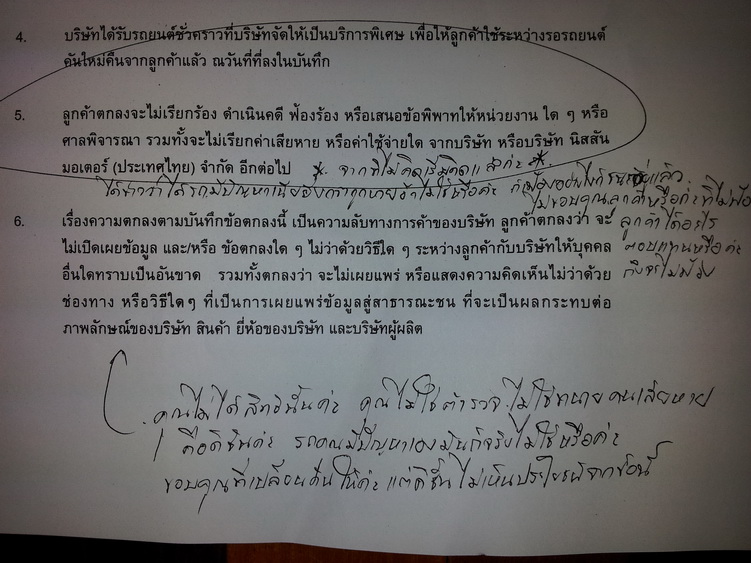 4. บริษัทได้รับรถยนต์ชั่วคราวที่บริษัทจัดให้เป็นบริการพิเศษ เพื่อให้ลูกค้าใช้ระหว่างรอรถยนต์
คันใหม่คืนจากลูกค้าแล้ว ณวันที่ที่ลงในบันทึก
5. ลูกค้าตกลงจะไม่เรียกร้อง ดำเนินคดี ฟ้องร้อง หรือเสนอข้อพิพาทให้หน่วยงาน ใด ๆ หรือ
ศาลพิจารณา รวมทั้งจะไม่เรียกค่าเสียหาย หรือค่าใช้จ่ายใด จากบริษัท หรือบริษัท นิสสัน
มอเตอร์ (ประเทศไทย) จำกัด อีกต่อไป จากที่ไม่คิดเริ่มคิดแล้วค่ะ
ได้ข่าวว่าได้รถมีปัญหา ไม่ใช่หรือค่ะ
ไม่ขอบคุณลูกค้าหรือค่ะที่ไม่ฟ้อง
6. เรื่องความตกลงตามบันทึกข้อตกลงนี้ เป็นความลับทางการค้าของบริษัท ลูกค้าตกลงว่า จะ ลูกค้าได้อะไร
ไม่เปิดเผยข้อมูล และ/หรือ ข้อตกลงใด ๆ ไม่ว่าด้วยวิธีใด ๆ ระหว่างลูกค้ากับบริษัทให้บุคคล ตอบแทนหรือค่ะ
อื่นใดทราบเป็นอันขาด รวมทั้งตกลงว่า จะไม่เผยแพร่ หรือแสดงความคิดเห็นไม่ว่าด้วย ถึงจะไม่ฟ้อง
ช่องทาง หรือวิธีใดๆ ที่เป็นการเผยแพร่ข้อมูลสู่สาธารณะชน ที่จะเป็นผลกระทบต่อ
ภาพลักษณ์ของบริษัท สินค้า ยี่ห้อของบริษัท และบริษัทผู้ผลิต
คุณไม่ได้สิทธินั้นค่ะ คุณไม่ใช่ตำรวจ ไม่ใช่ทนาย คนเสียหาย
คือดิชั้นค่ะ รถคุณมีปัญหาเองมันก็จริงไม่ใช่หรือค่ะ
ขอบคุณที่เปลี่ยนคืนให้ค่ะ แต่ดิชั้นไม่เห็นประโยชน์จากข้อนี้